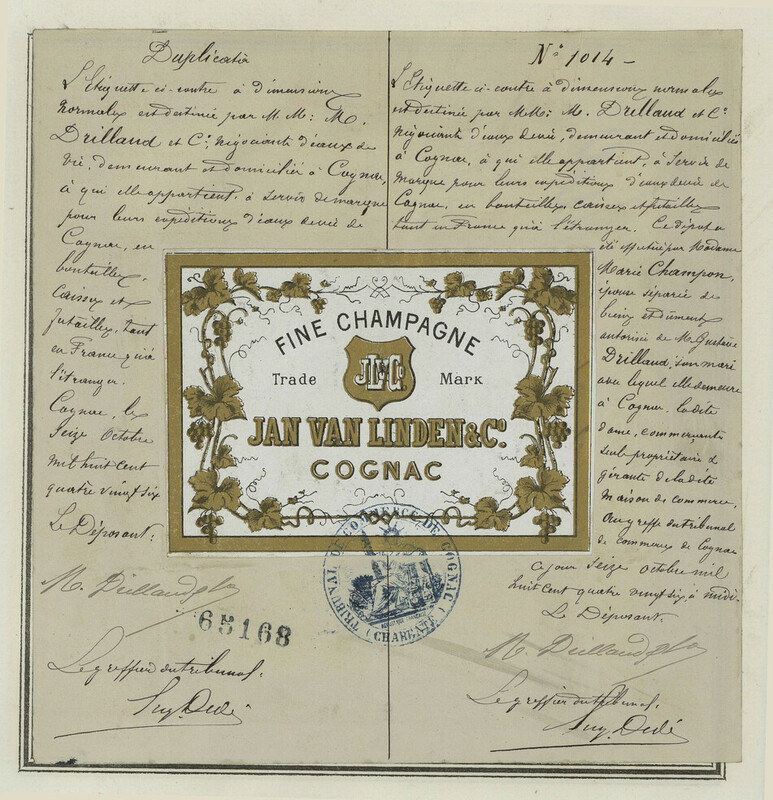 Duplicata
L'Etiquette ci-contre à dimensions
normales est destinée par M M: M.
Drilland et Cie, négociants d'eaux de
vie, demeurant et domiciliés à Cognac,
à qui elle appartient, à servir de marque
pour leurs expéditions d'eaux de vie de
Cognac, en
bouteilles,
caisses et
futailles, tant
en France qu'à
l'étranger.
Cognac, le
Seize Octobre
mil huit cent
quatre vingt six
Le Déposant:
M. Drilland & Co
65168
Le greffier du tribunal.
Aug. Dedé
N° 1014 -
L'Etiquette ci-contre à dimensions normales
est destinée par MM: M. Drilland et Cie
négociants d'eaux de vie, demeurant et domiciliés
à Cognac, à qui elle appartient, à servir de
marque pour leurs expéditions d'eaux de vie de
Cognac, en bouteilles caisses et futailles
tant en France qu'à l'étranger. Ce dépôt a
été effectué par Madame
Marie Champon,
épouse séparée de
biens et dûment
autorisée de M. Gustave
Drilland, son mari
avec lequel elle demeure
à Cognac. la dite
dame, commerçante
seule propriétaire &
gérante de la dite
maison de commerce,
Au greffe du tribunal
de commerce de Cognac
ce jour Seize Octobre mil
huit cent quatre vingt six à midi.
Le Déposant.
M. Drilland & Co
Le greffier du tribunal.
Aug. Dedé
FINE CHAMPAGNE
Trade JVL&Co Mark
JAN VAN LINDEN & Co.
COGNAC
TRIBUNAL DE COMMERCE DE COGNAC
(CHARENTE)